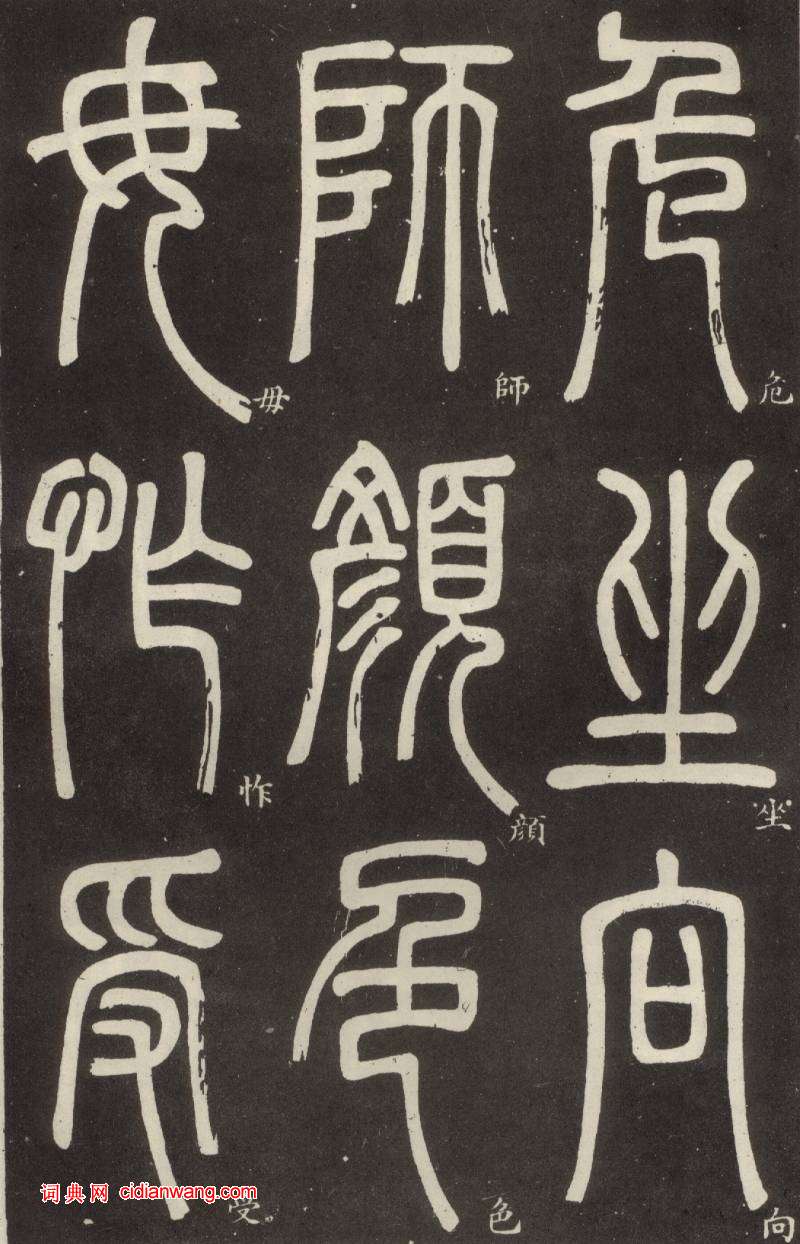 危坐向
師顏色
毋怍受
危
坐
向
師
顔
色
毋
怍
受
词典网 cidianwang.com